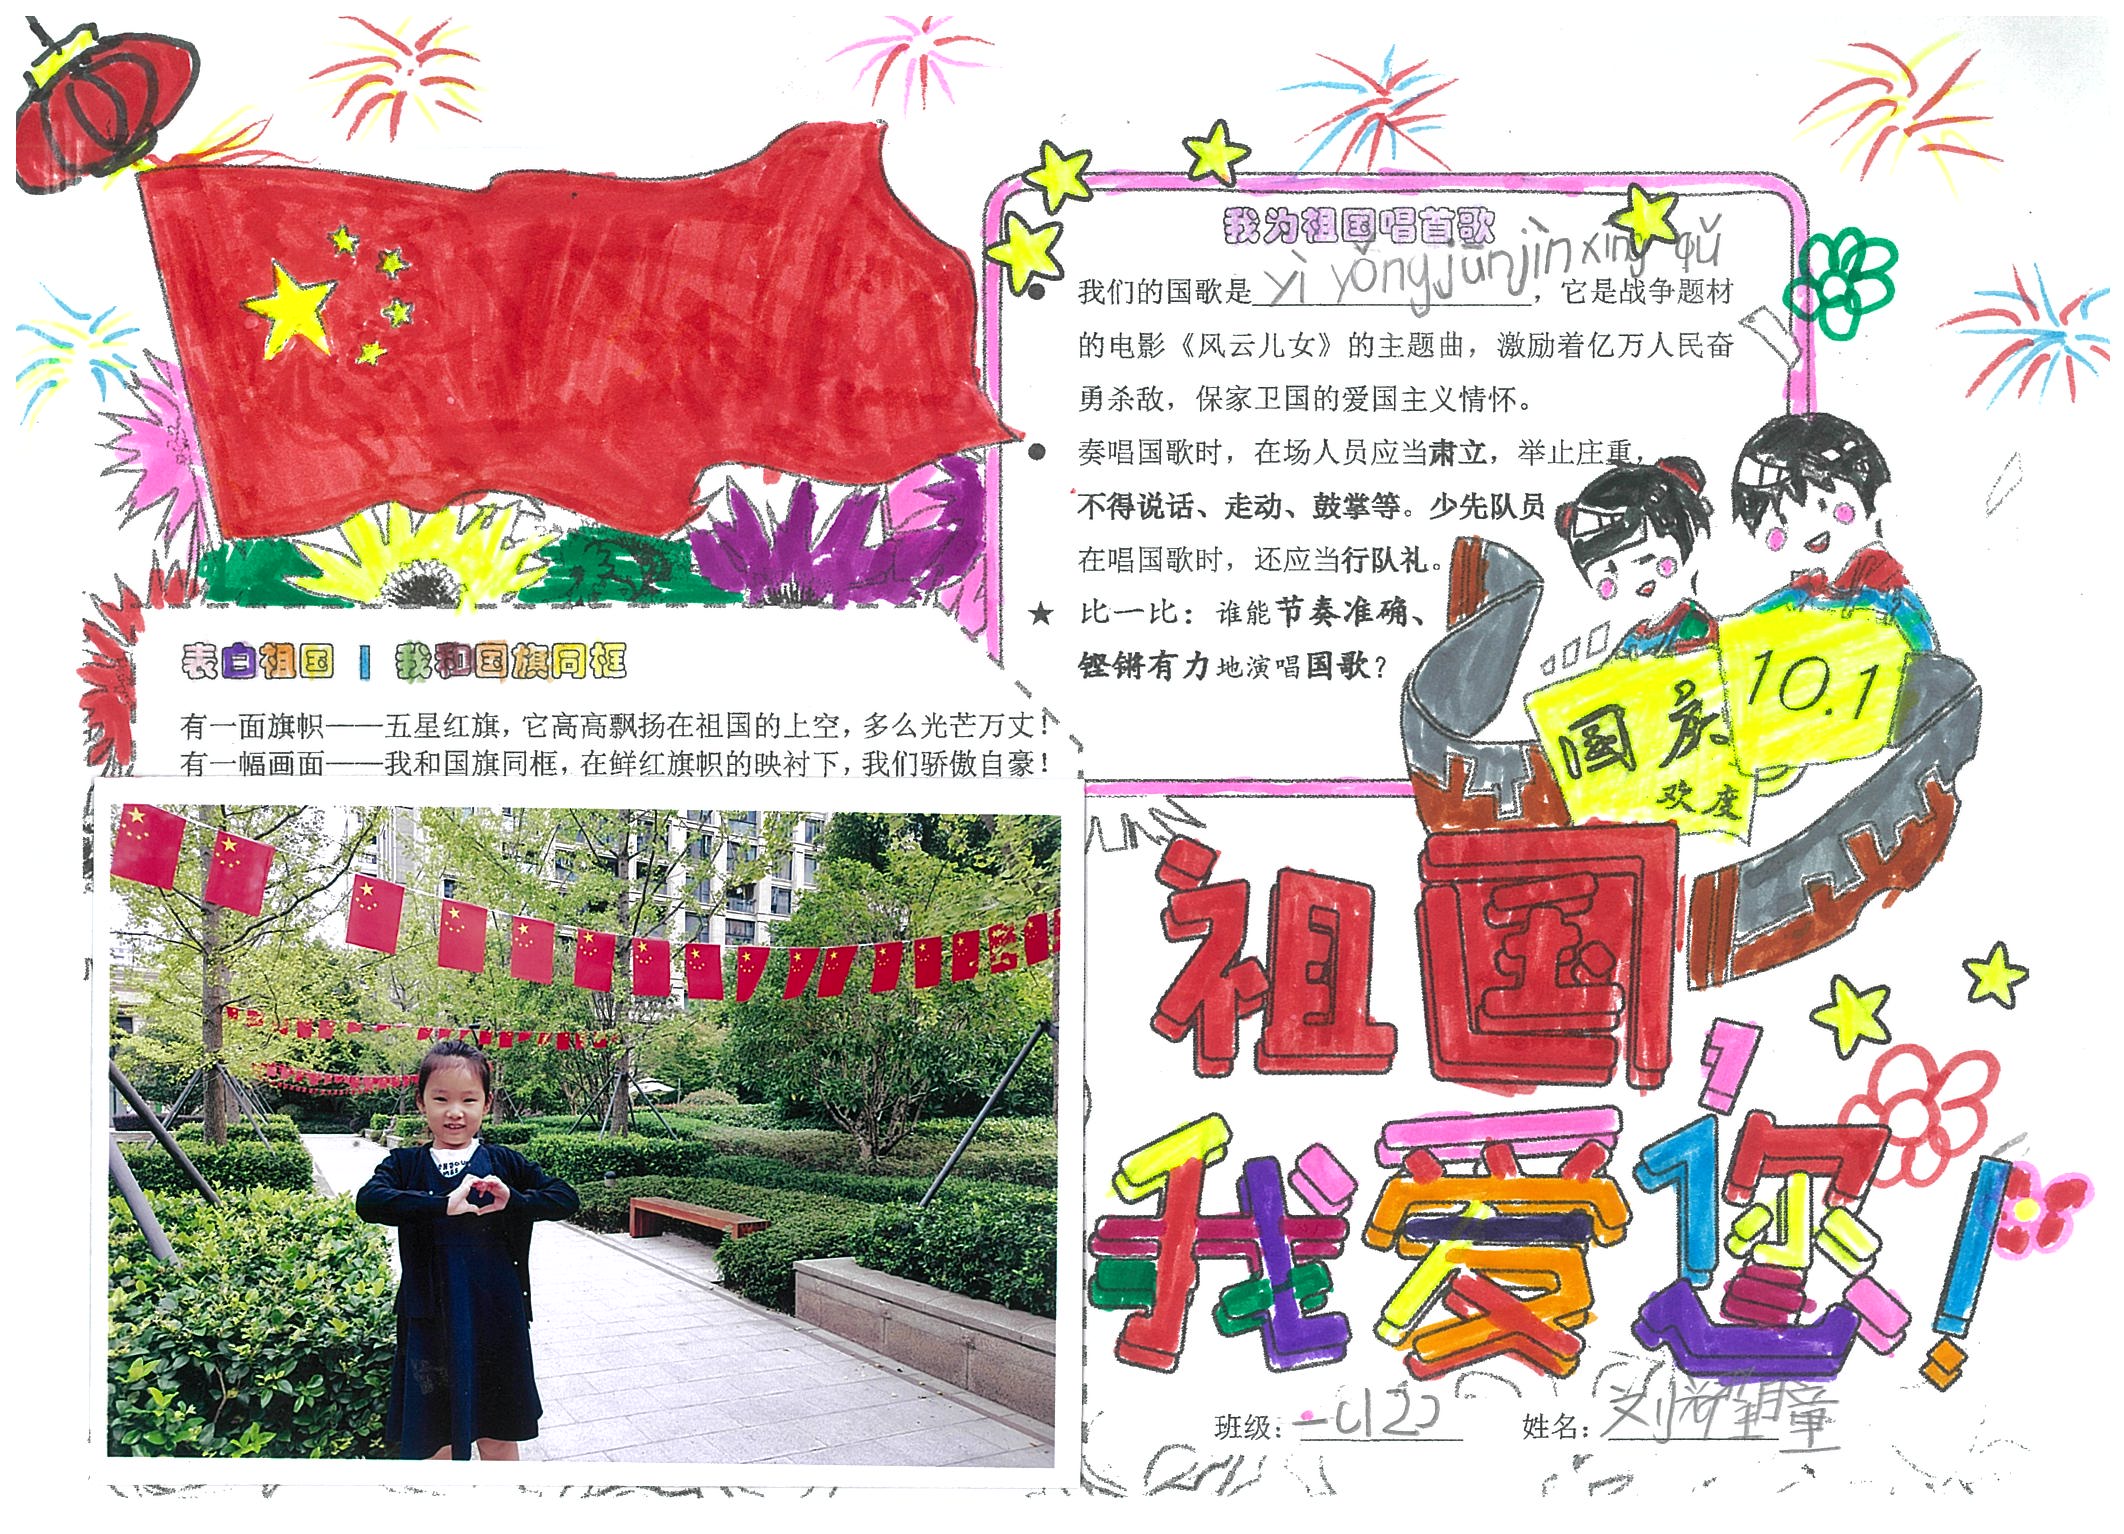 我为祖国唱首歌
我们的国歌是yì yǒngjūnjìn xíng qǔ，它是战争题材
的电影《风云儿女》的主题曲，激励着亿万人民奋
勇杀敌，保家卫国的爱国主义情怀。
奏唱国歌时，在场人员应当肃立，举止庄重，
不得说话、走动、鼓掌等。少先队员
在唱国歌时，还应当行队礼。
比一比：谁能节奏准确、
铿锵有力地演唱国歌？
国庆
欢度
10.1
表白祖国 | 我和国旗同框
有一面旗帜——五星红旗，它高高飘扬在祖国的上空，多么光芒万丈！
有一幅画面——我和国旗同框，在鲜红旗帜的映衬下，我们骄傲自豪！
祖国
我爱您！
班级：一(12) 姓名：刘